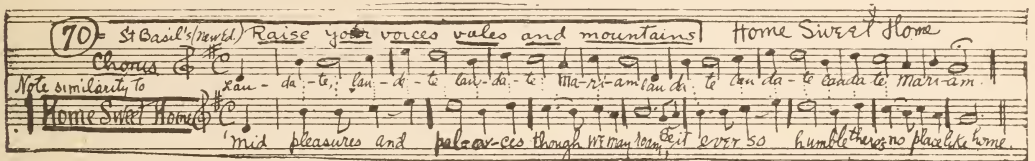 70 = St Basil's (New Ed.) Raise your voices vales and mountains Home Sweet Home
Chorus
Note similarity to Lau - da - te, lau - da - te lau - da - te Ma - ri - am lau da te lau da - te lauda te Mariam
Home Sweet Home
'mid pleasures and pal - a - ces though we may roam Be it ever so humble there's no place like home.